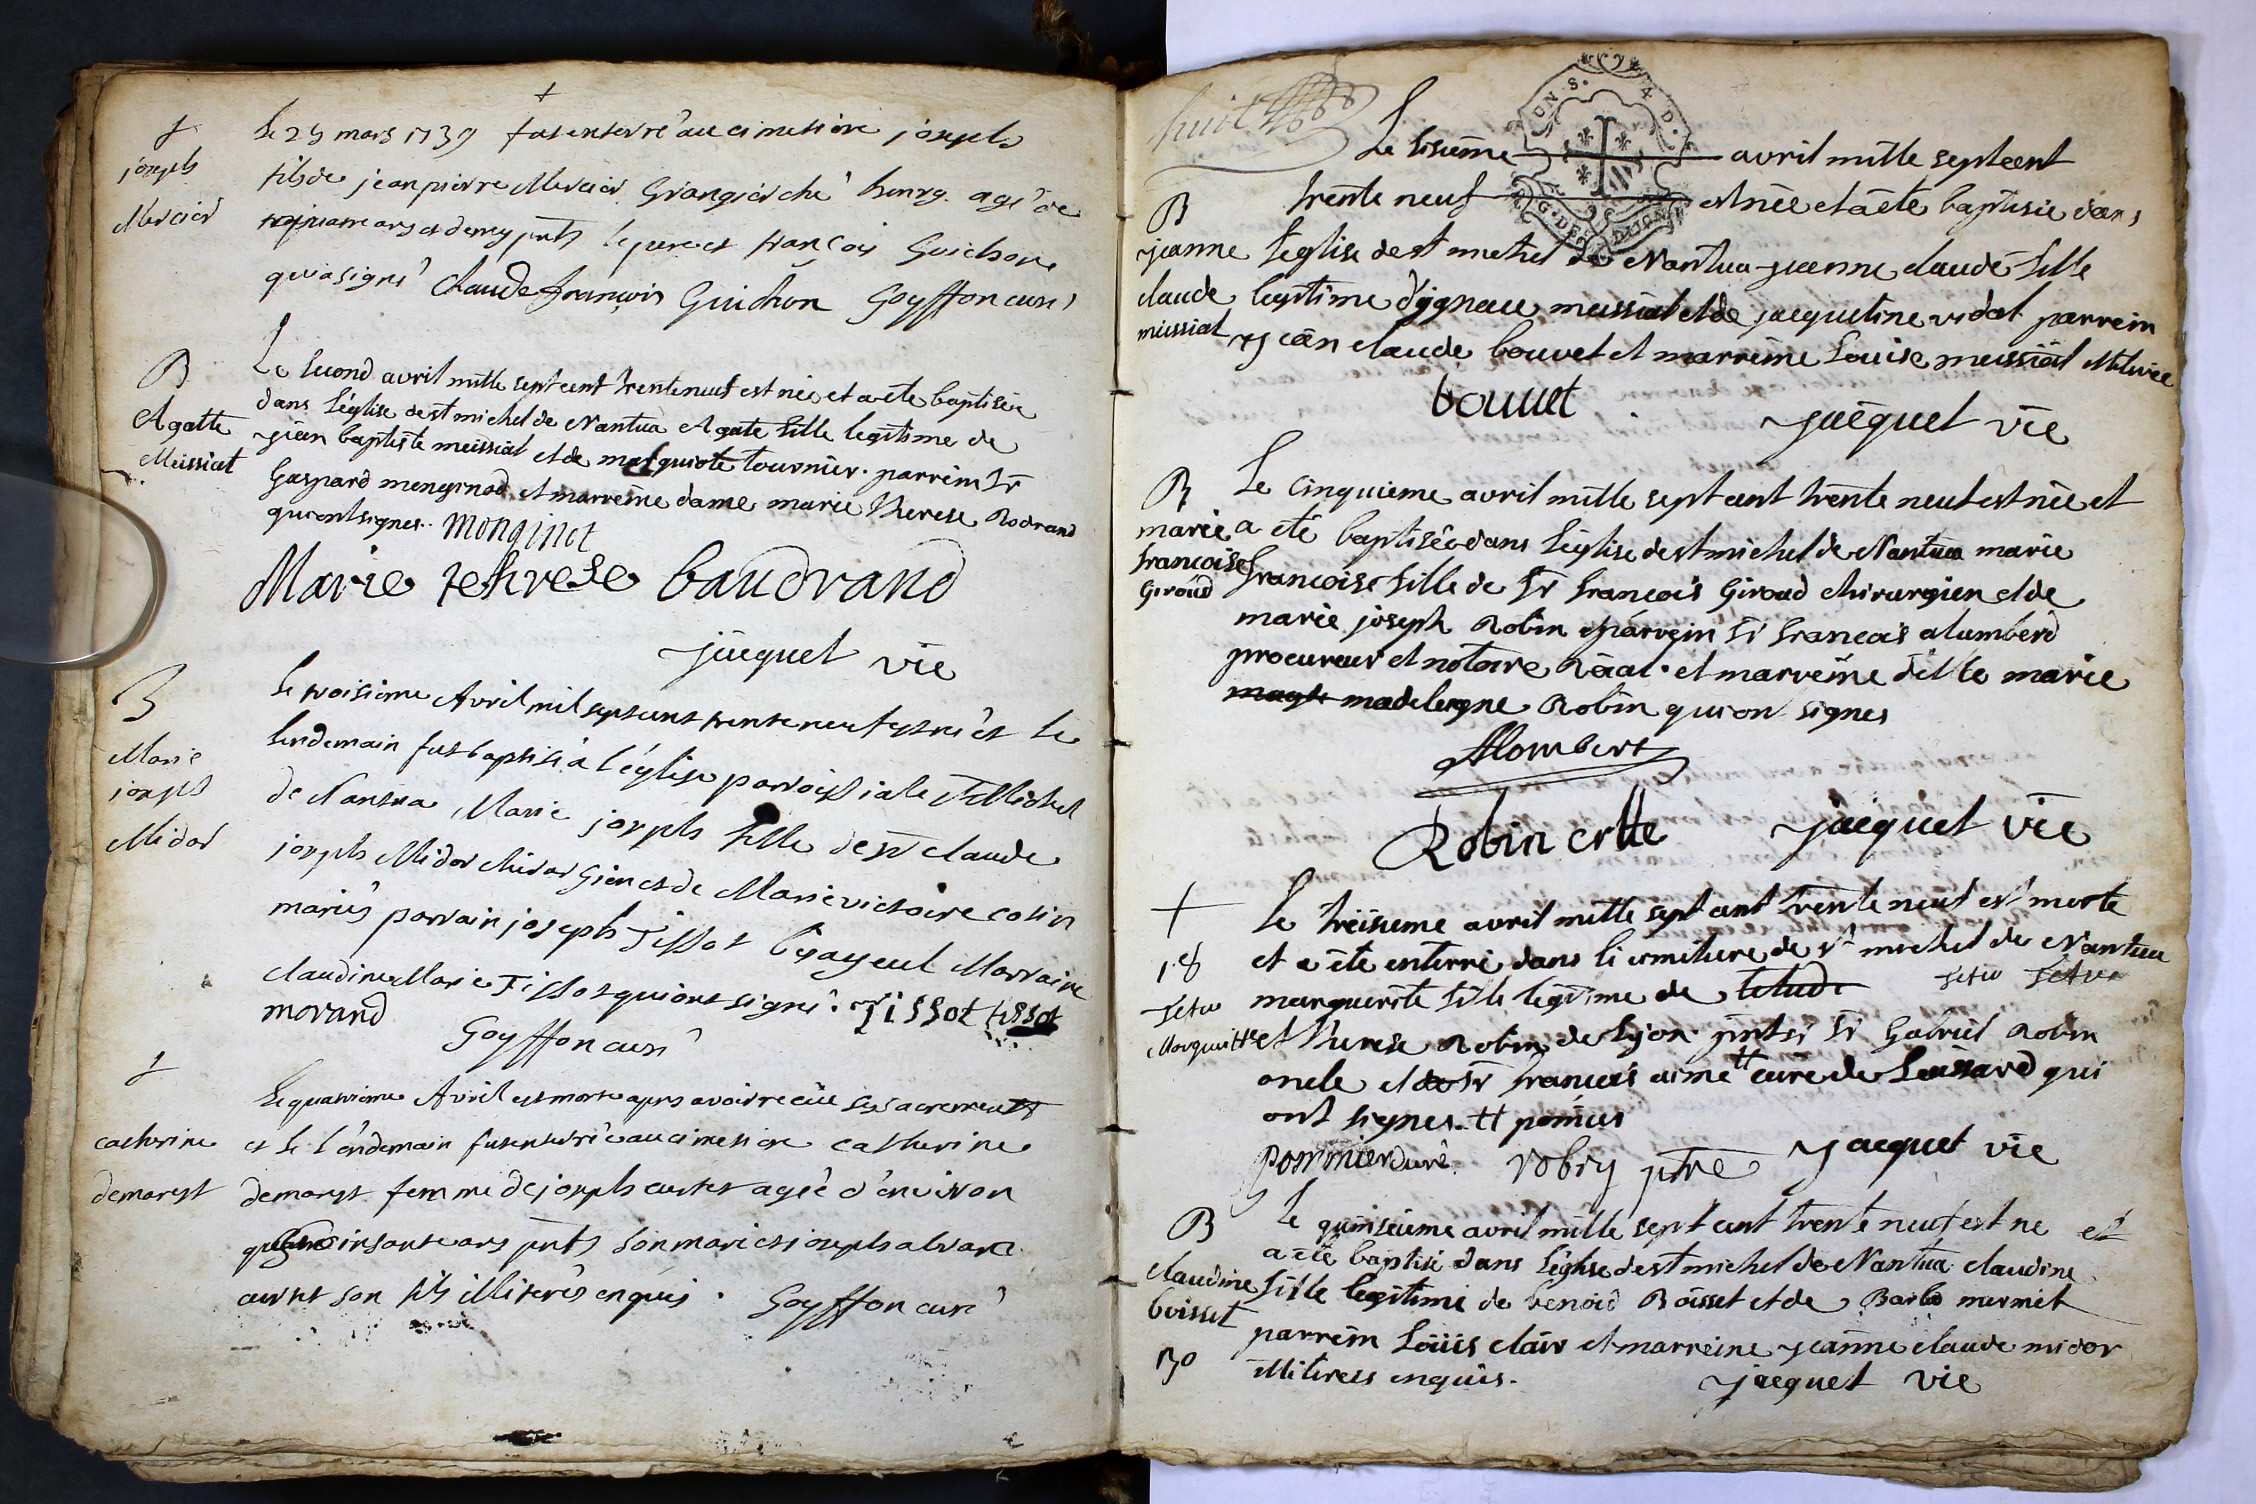 †
joseph
Mercier
Le 25 mars 1739 fut enterré au cimetiere joseph
fils de jean pierre Mercier Grangier ché bourg agé de
quatre ans et demy pnts le pere et françois Guichon
qui a signé Claude françois Guichon Goyffon curé
B
Agatte
Meissiat
Le second avril mille sept cent trente neuf est née et a ete baptisée
dans L'église de st michel de Nantua Agate fille legitime de
jean baptiste meissiat et de marquiote tournier. parrein Sr
Gaspard monginod et marreine dame marie Therese Bodrand
qui ont signes. monginot
Marie tehrese baudrand
jacquet vic
B
Marie
joseph
Midor
Le troisieme Avril mil sept cent trente neuf est né et le
lendemain fut baptisé a l'église parroissiale St Michel
de Nantua Marie joseph fille de sr claude
joseph Midor chirurgien et de Marie victoire cotin
mariés parrain joseph Tissot bisayeul Marraine
claudine Marie Tissot qui ont signé. Tissot tissot
morand
Goyffon curé
†
catherine
demarest
Le quatrieme Avril est morte aprs avoir recüe ses sacrements
et le l'endemain fut enterrée au cimetiere catherine
demarest femme de joseph curtet agée d'environ
soinsante ans pnts son mari et joseph alvare
curtet son fils illiterés enquis. Goyffon curé
huit
Le sisieme avril mille septcent
trente neuf est née et a ete baptisée dans
B
jeanne
claude
missiat
L'eglise de st michel de Nantua jeanne claude fille
legitime d'ygnace meissiat et de jacquetine vidal parrein
jean claude bouvet et marreine Louise meissiat illitirée
bouuet jacquet vic
B
marie
francoise
Giroud
Le cinquieme avril mille sept cent trente neuf est née et
a été baptisée dans L'église de st michel de Nantua marie
francoise fille de Sr francois Giroud chirurgien et de
marie joseph Robin parrein Sr francois alumberd
procureur et notaire Röäal. et marreine dlle marie
magde madelegne Robin qui on signes
Alombert
Robin cvtte jacquet vic
†
Marguitte
Le treisieme avril mille sept cent trente neuf est morte
et a été enterré dans le cimitiere de st michel de Nantua
marguerite fille legitime de
et therese Robin de Lyon. pnts Sr Gabriel Robin
oncle et de Sr francois aimé tt curé de Leissard qui
ont signes. tt pomier
pommier curé. robin ptre jacquet vic
B
claudine
boisset
Le quinsieme avril mille sept cent trente neuf est ne et
a été baptisé dans L'église de st michel de Nantua claudine
fille legitime de benoid Boisset et de Barbe mermet
parrein Loüis clair et marreine jeanne claude midor
illitireés enquis.
jacquet vic